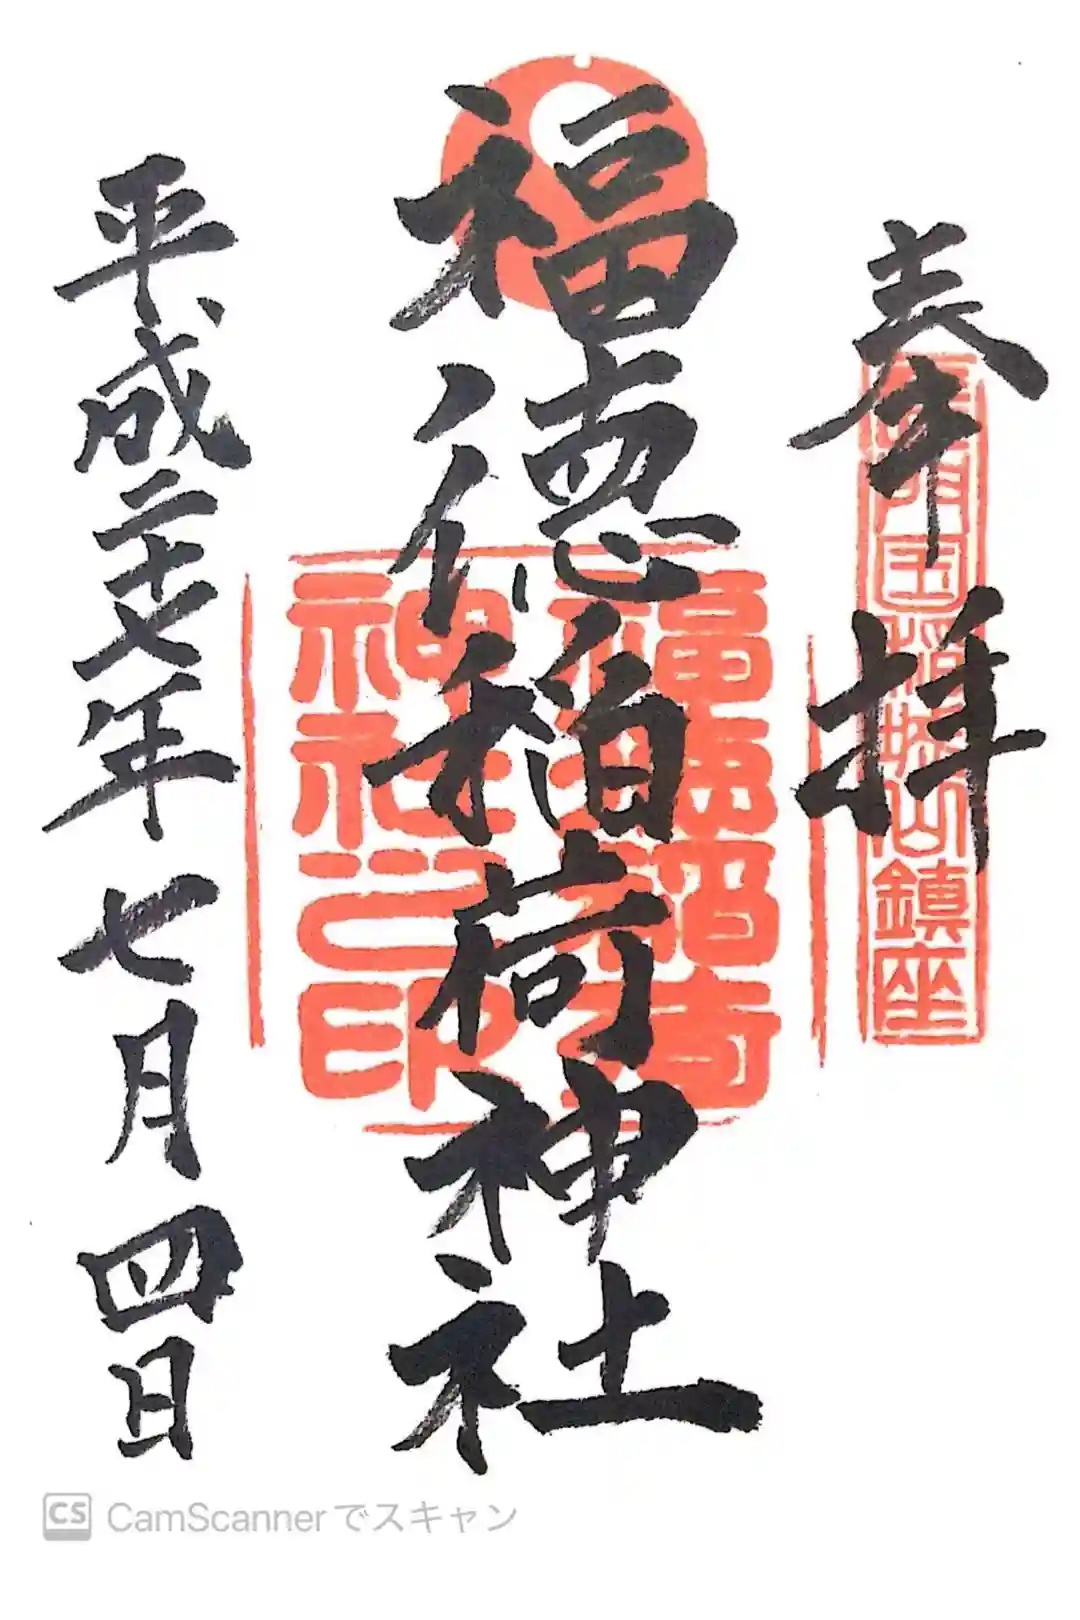 奉拝
長門国稲城山鎮座
福徳稲荷神社
福徳稲荷
神社之印
平成二十七年七月四日
CS CamScannerでスキャン